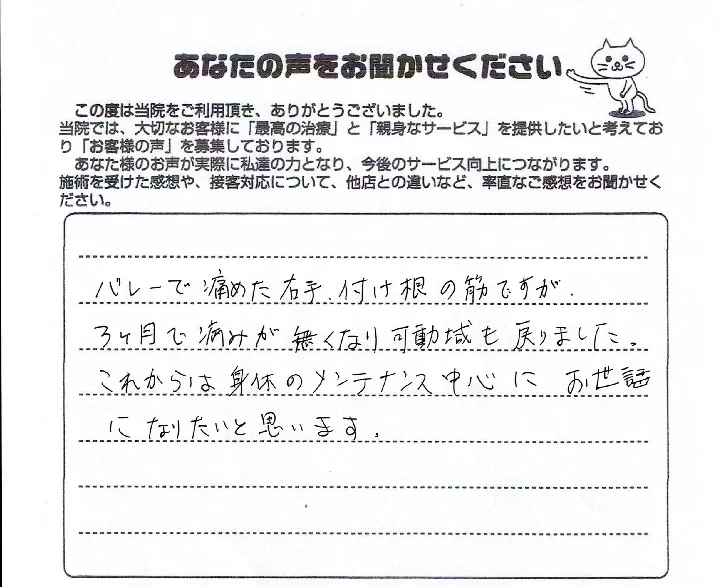 あなたの声をお聞かせください
この度は当院をご利用頂き、ありがとうございました。
当院では、大切なお客様に「最高の治療」と「親身なサービス」を提供したいと考えてお
り「お客様の声」を募集しております。
あなた様のお声が実際に私達の力となり、今後のサービス向上につながります。
施術を受けた感想や、接客対応について、他店との違いなど、率直なご感想をお聞かせく
ださい。
バレーで痛めた右手、付け根の筋ですが、
3ヶ月で痛みが無くなり可動域も戻りました。
これからは身体のメンテナンス中心にお世話
になりたいと思います。